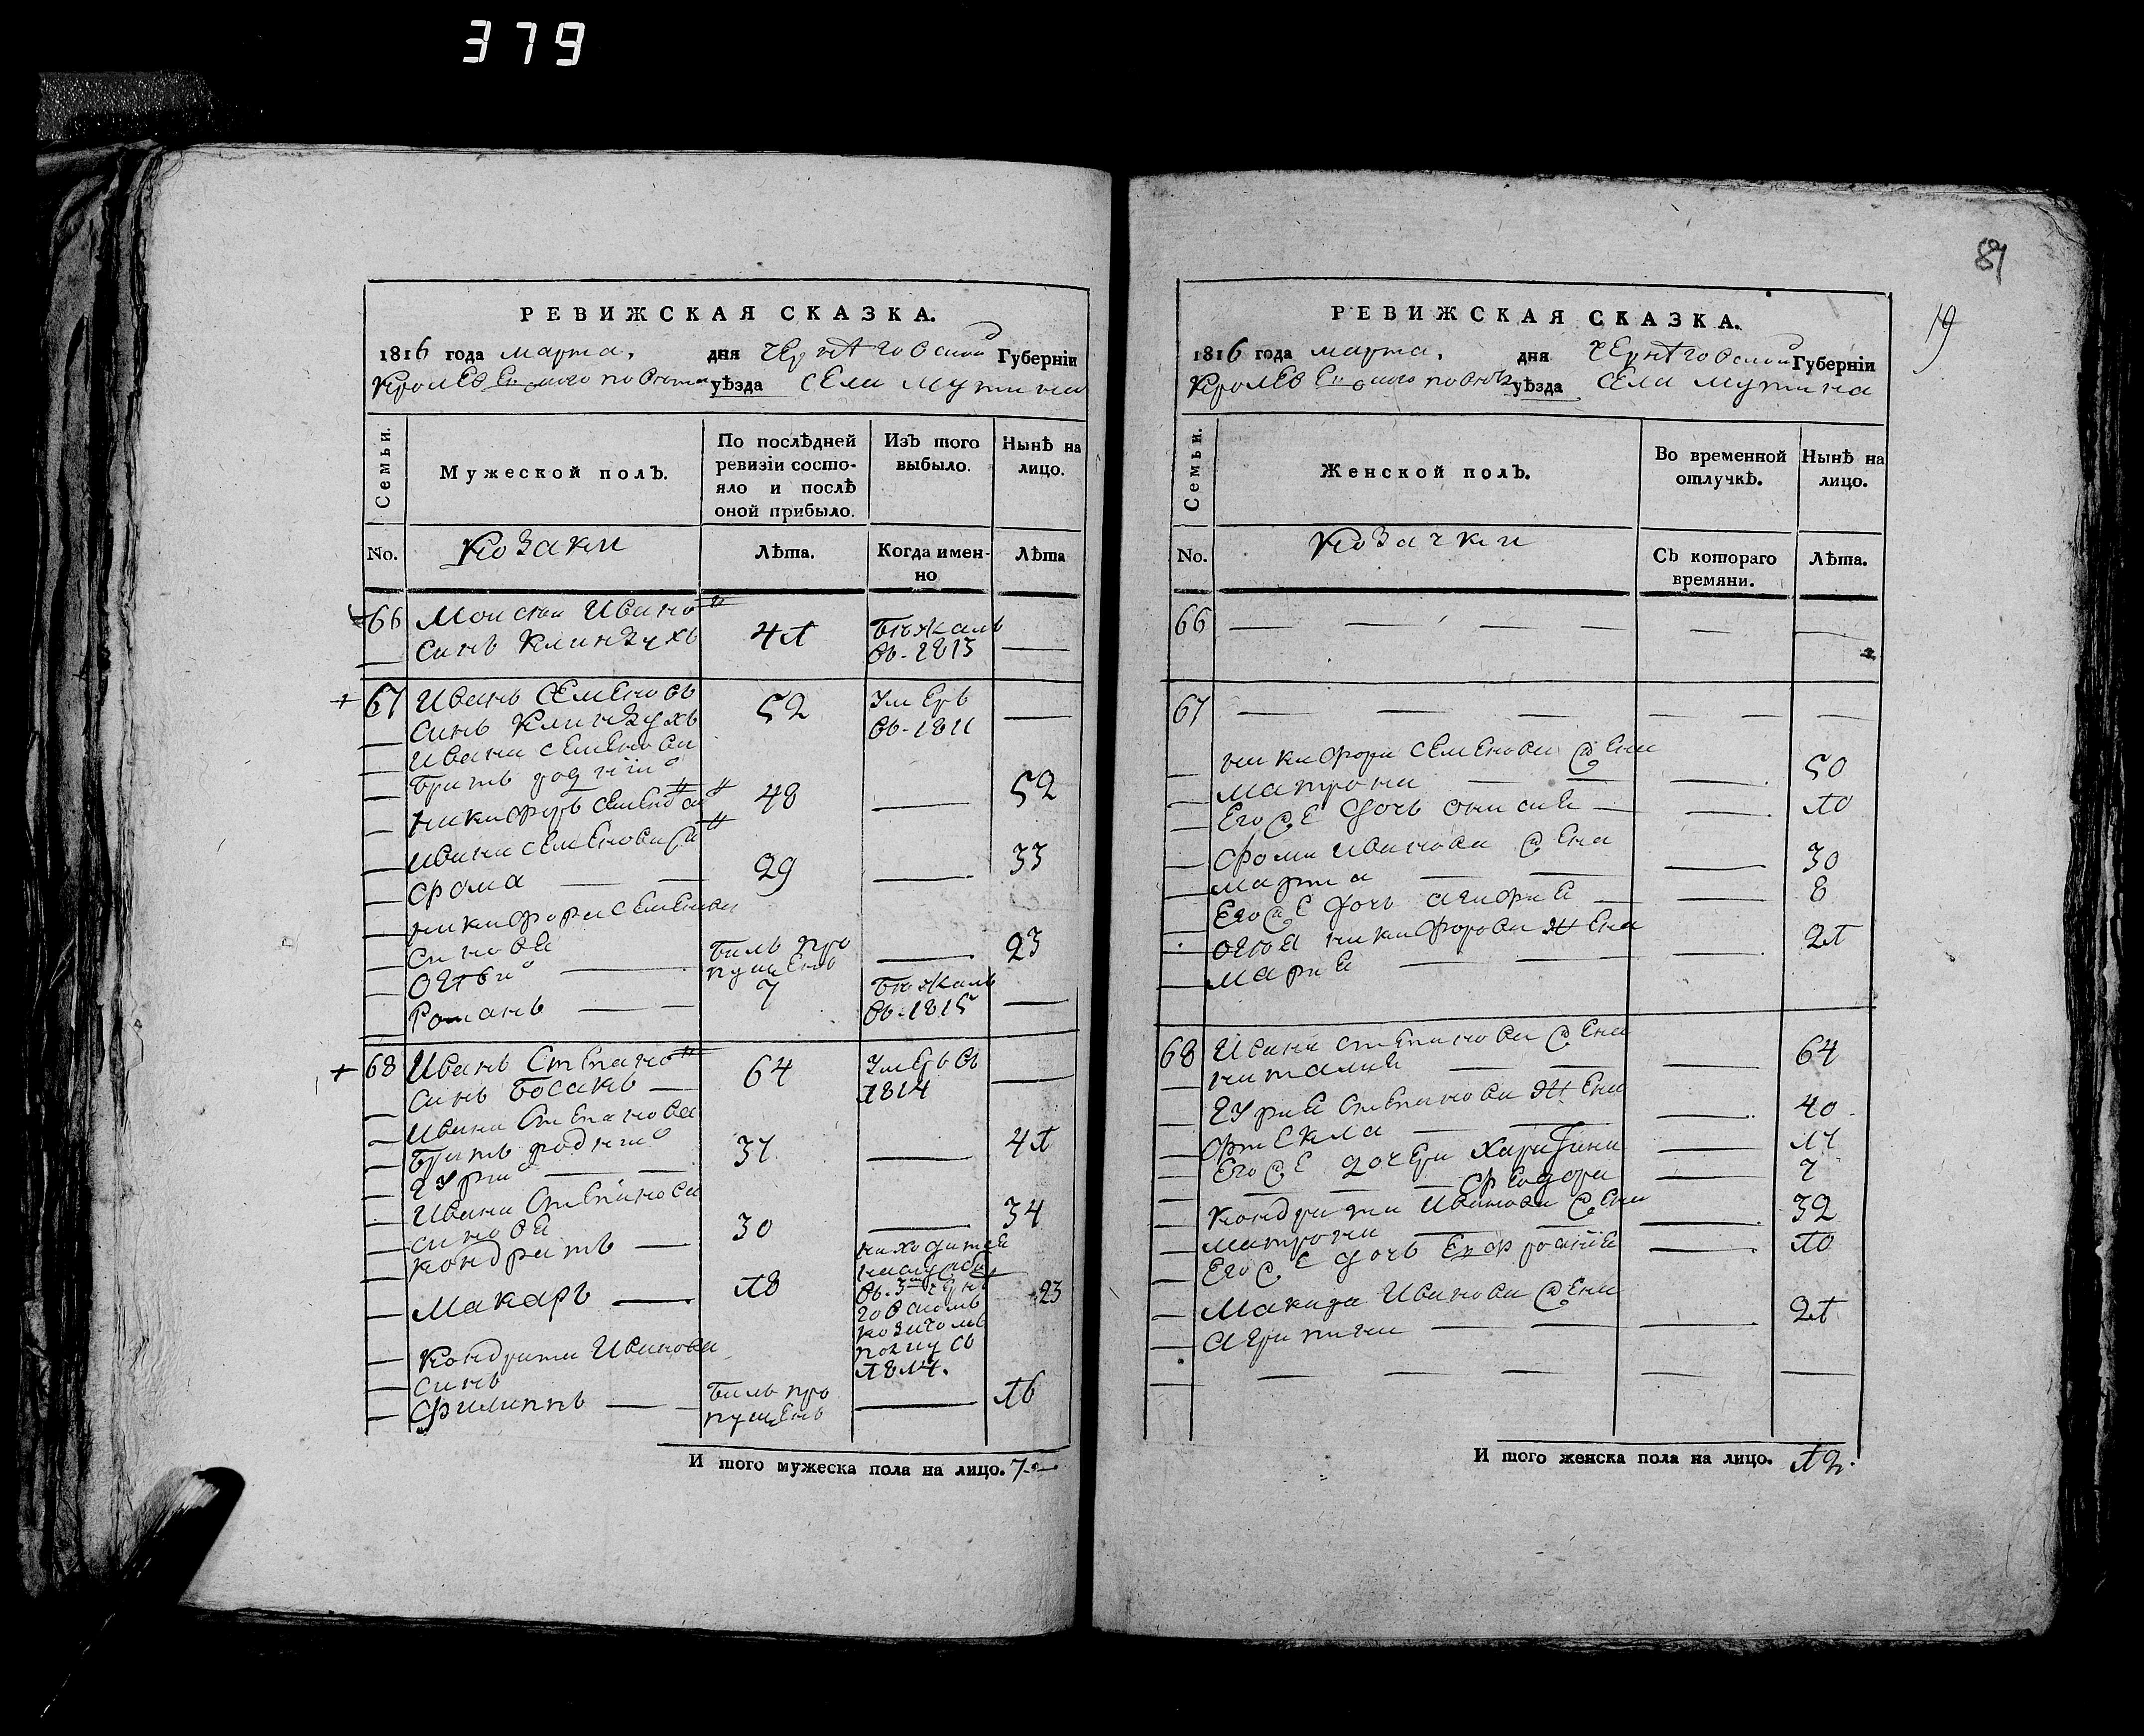 379
РЕВИЖСКАЯ СКАЗКА.
1816 года марта, дня Чернѣговской Губерніи
Кролевецкого повѣта уѣзда села Мутина
Семьи.
Мужеской полъ.
По послѣдней ревизіи состо-
яло и послѣ
оной прибыло.
Изъ того
выбыло.
Нынѣ на
лицо.
No.
Козаки
Лѣта.
Когда имен-
но
Лѣта
66 Моисей Иванов
синъ Клинзухъ 41 бежалъ
въ 1813
67 Иванъ Семеновъ
синъ Клинзухъ 52 Умеръ
въ 1811
Ивана Семенова
братъ родній
Никифоръ Семенов 48 52
Ивана Семенова син
Фома 29 33
Никифора Семенова
синовя
билъ про
пущенъ 23
Романъ 7 бежалъ
въ 1815
68 Иванъ Степанов
синъ Босакъ 64 Умеръ въ
1814
Ивана Степанова
братъ родній
Гурій 37 41
Ивана Степанова
синовя
Кондратъ 30 34
Макаръ 18 находится
въ 3м Черне
говскомъ
козачомъ
полку съ
1814. 23
Кондрата Иванова
синъ
Филиппъ билъ про
пущенъ 16
И того мужеска пола на лицо. 7
89
19
РЕВИЖСКАЯ СКАЗКА.
1816 года марта, дня Чернѣговской Губерніи
Кролевецкого повѣта уѣзда села Мутина
Семьи.
Женской полъ.
Во временной
отлучкѣ.
Нынѣ на
лицо.
No.
Козачки
Съ котораго
времяни.
Лѣта.
66
67
Никифора Семенова жена
Матрона 50
Его же дочь Онисия 10
Фоми Иванова жена
Марта 30
Его же дочь Агафия 8
Никифорова жена
Мария 21
68 Ивана Степанова жена
Наталия 64
Гурия Степанова жена
Фтекла 40
Его же дочери Харитина 14
Сфеодора 7
Кондрата Иванова жена
Матрона 32
Его же дочь Ефросиния 10
Макара Иванова жена
Агрипина 21
И того женска пола на лицо. 12.